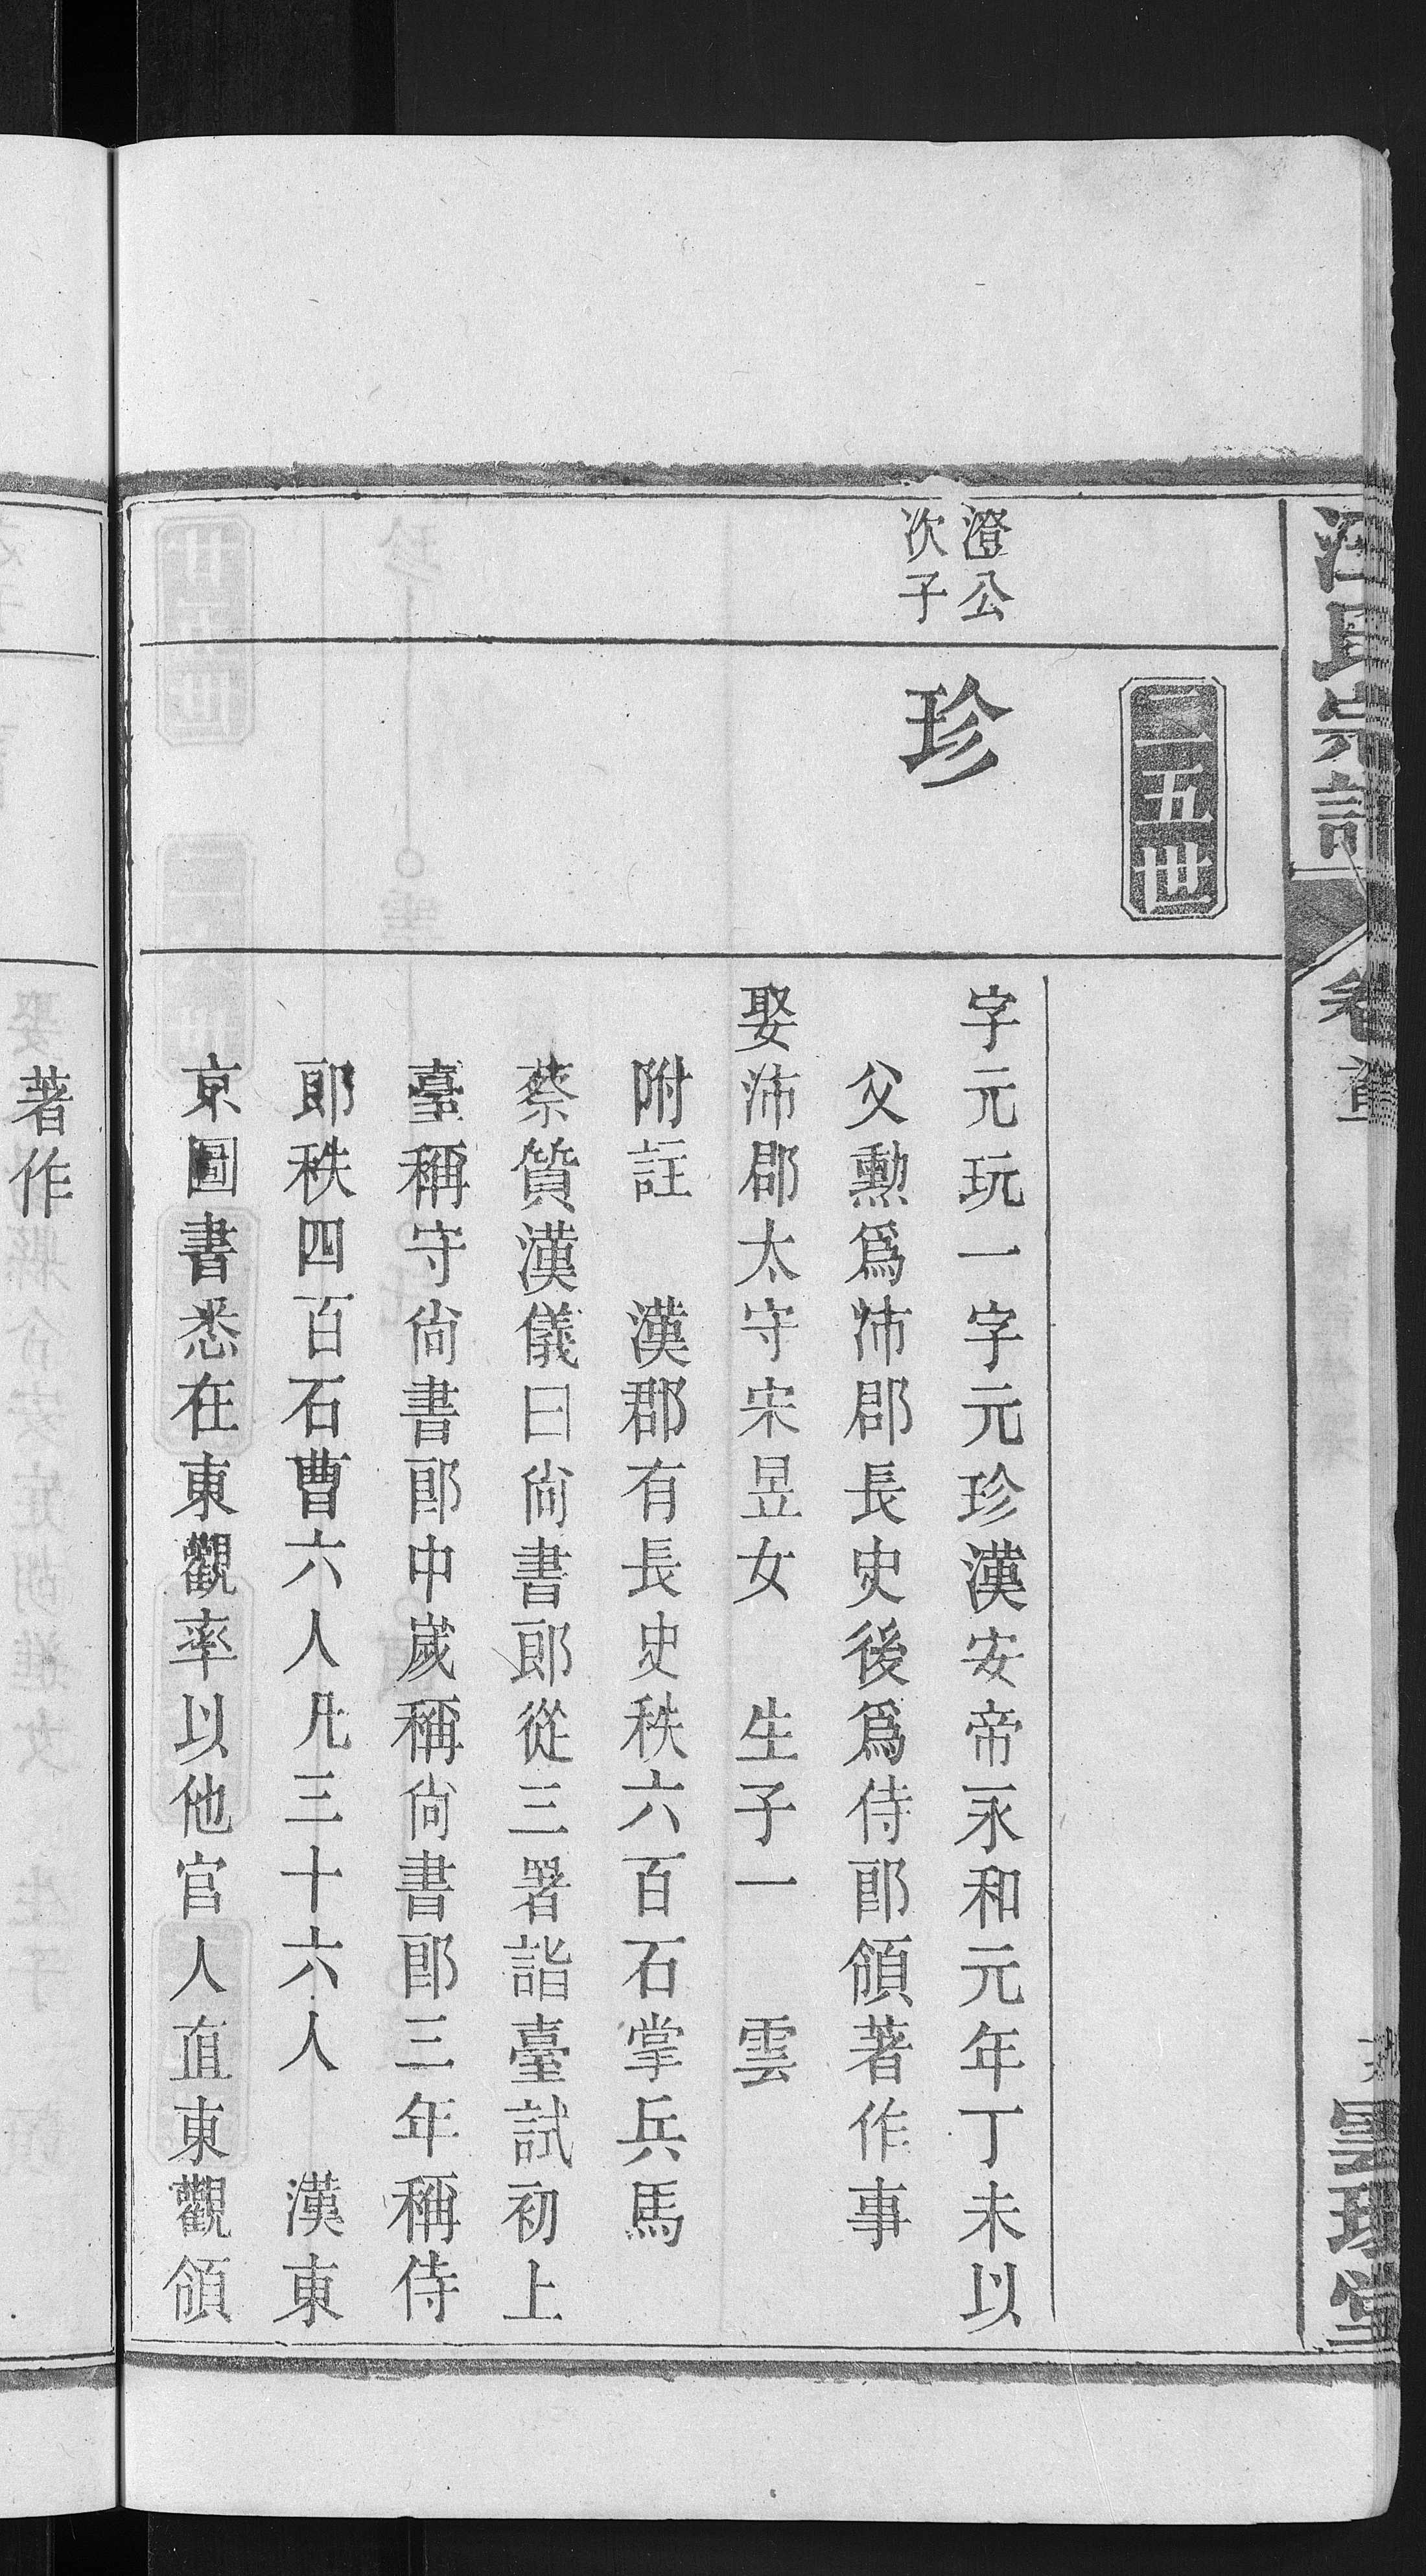 汪氏宗譜
卷壹
二五世
澄公
次子
珍
字元玩一字元珍漢安帝永和元年丁未以
父勳爲沛郡長史後爲侍郎領著作事
娶沛郡太守宋昱女　生子一　雲
附註　漢郡有長史秩六百石掌兵馬
蔡質漢儀曰尚書郎從三署詣臺試初上
臺稱守尚書郎中歲稱尚書郎三年稱侍
郎秩四百石曹六人凡三十六人　漢東
京圖書悉在東觀率以他官人直東觀領
著作